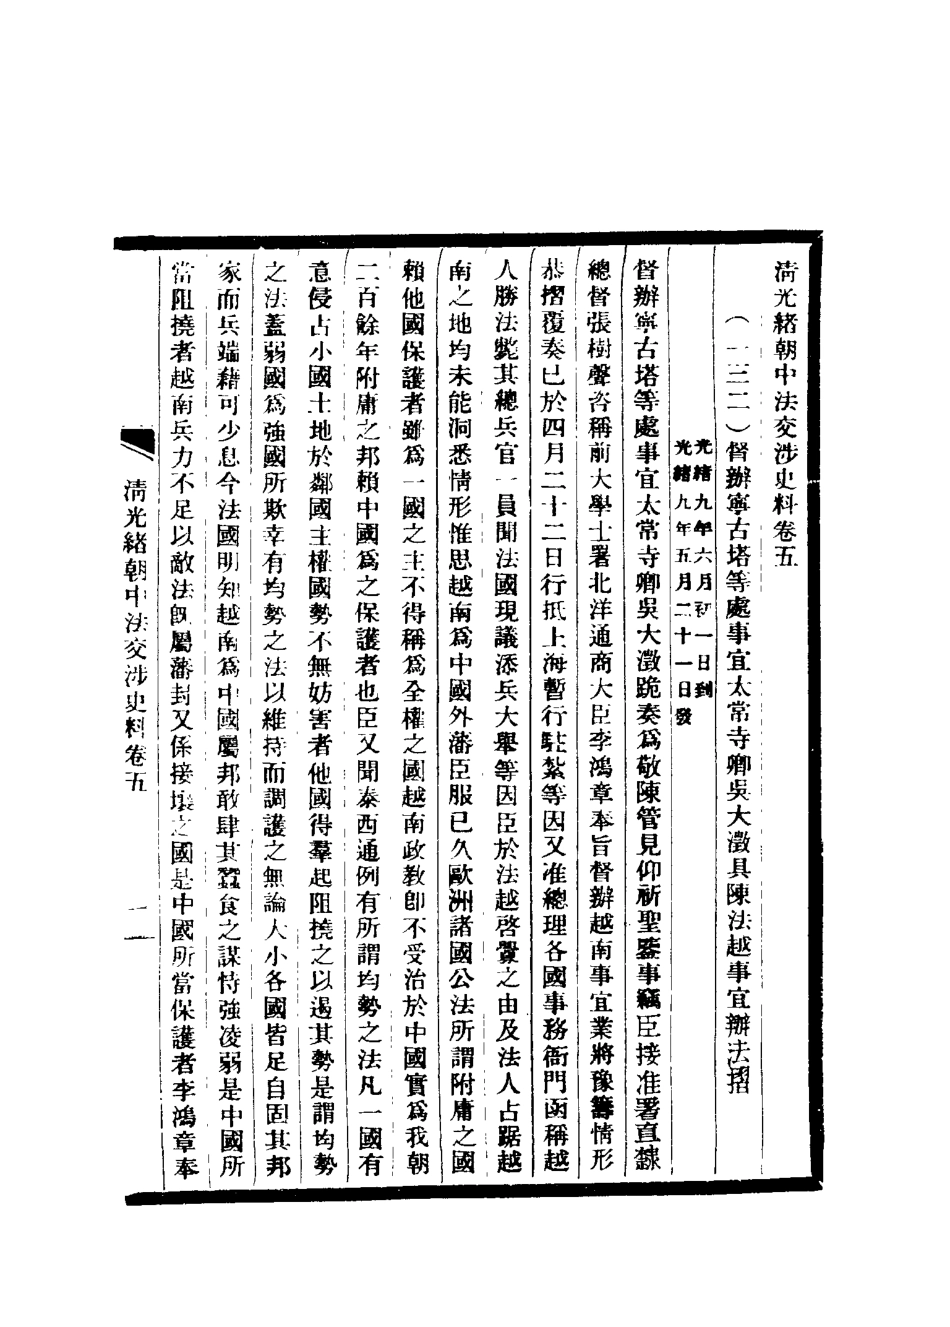 淸光緒朝中法交涉史料卷五
（一三二）督辦寧古塔等處事宜太常寺卿吳大澂具陳法越事宜辦法摺
光緒九年六月初一日到
光緒九年五月二十一日發
督辦寧古塔等處事宜太常寺卿吳大澂跪奏爲敬陳管見仰祈聖鑒事竊臣接准署直隸
總督張樹聲咨稱前大學士署北洋通商大臣李鴻章奉旨督辦越南事宜業將豫籌情形
恭摺覆奏已於四月二十二日行抵上海暫行駐紮等因又准總理各國事務衙門函稱越
人勝法斃其總兵官一員聞法國現議添兵大舉等因臣於法越啓釁之由及法人占踞越
南之地均未能洞悉情形惟思越南爲中國外藩臣服已久歐洲諸國公法所謂附庸之國
賴他國保護者雖爲一國之主不得稱爲全權之國越南政敎卽不受治於中國實爲我朝
二百餘年附庸之邦賴中國爲之保護者也臣又聞泰西通例有所謂均勢之法凡一國有
意侵占小國土地於鄰國主權國勢不無妨害者他國得羣起阻撓之以遏其勢是謂均勢
之法蓋弱國爲強國所欺幸有均勢之法以維持而調護之無論大小各國皆足自固其邦
家而兵端藉可少息今法國明知越南爲中國屬邦敢肆其蠶食之謀恃強凌弱是中國所
當阻撓者越南兵力不足以敵法旣屬藩封又係接壤之國是中國所當保護者李鴻章奉
淸光緒朝中法交涉史料卷五
一